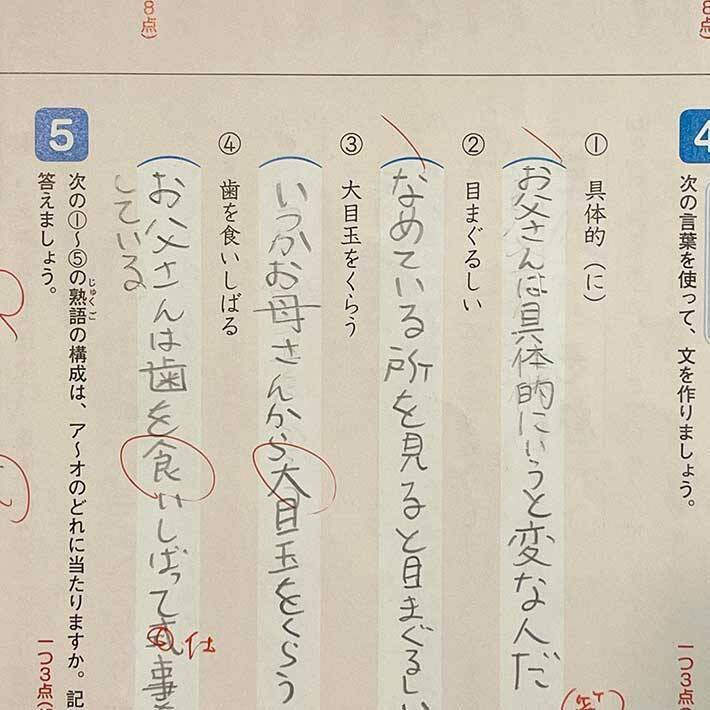 8点)
4
次の言葉を使って、文を作りましょう。
一つ3点(
① 具体的(に)
お父さんは具体的にいうと変なんだ
② 目まぐるしい
なめている所を見ると目まぐるしい
③ 大目玉をくらう
いつかお母さんから大目玉をくらう
④ 歯を食いしばる
お父さんは歯を食いしばって事を
仕
している
8点)
5
次の①〜⑤の熟語の構成は、ア〜オのどれに当たりますか。記
じゅくご
答えましょう。
一つ3点(